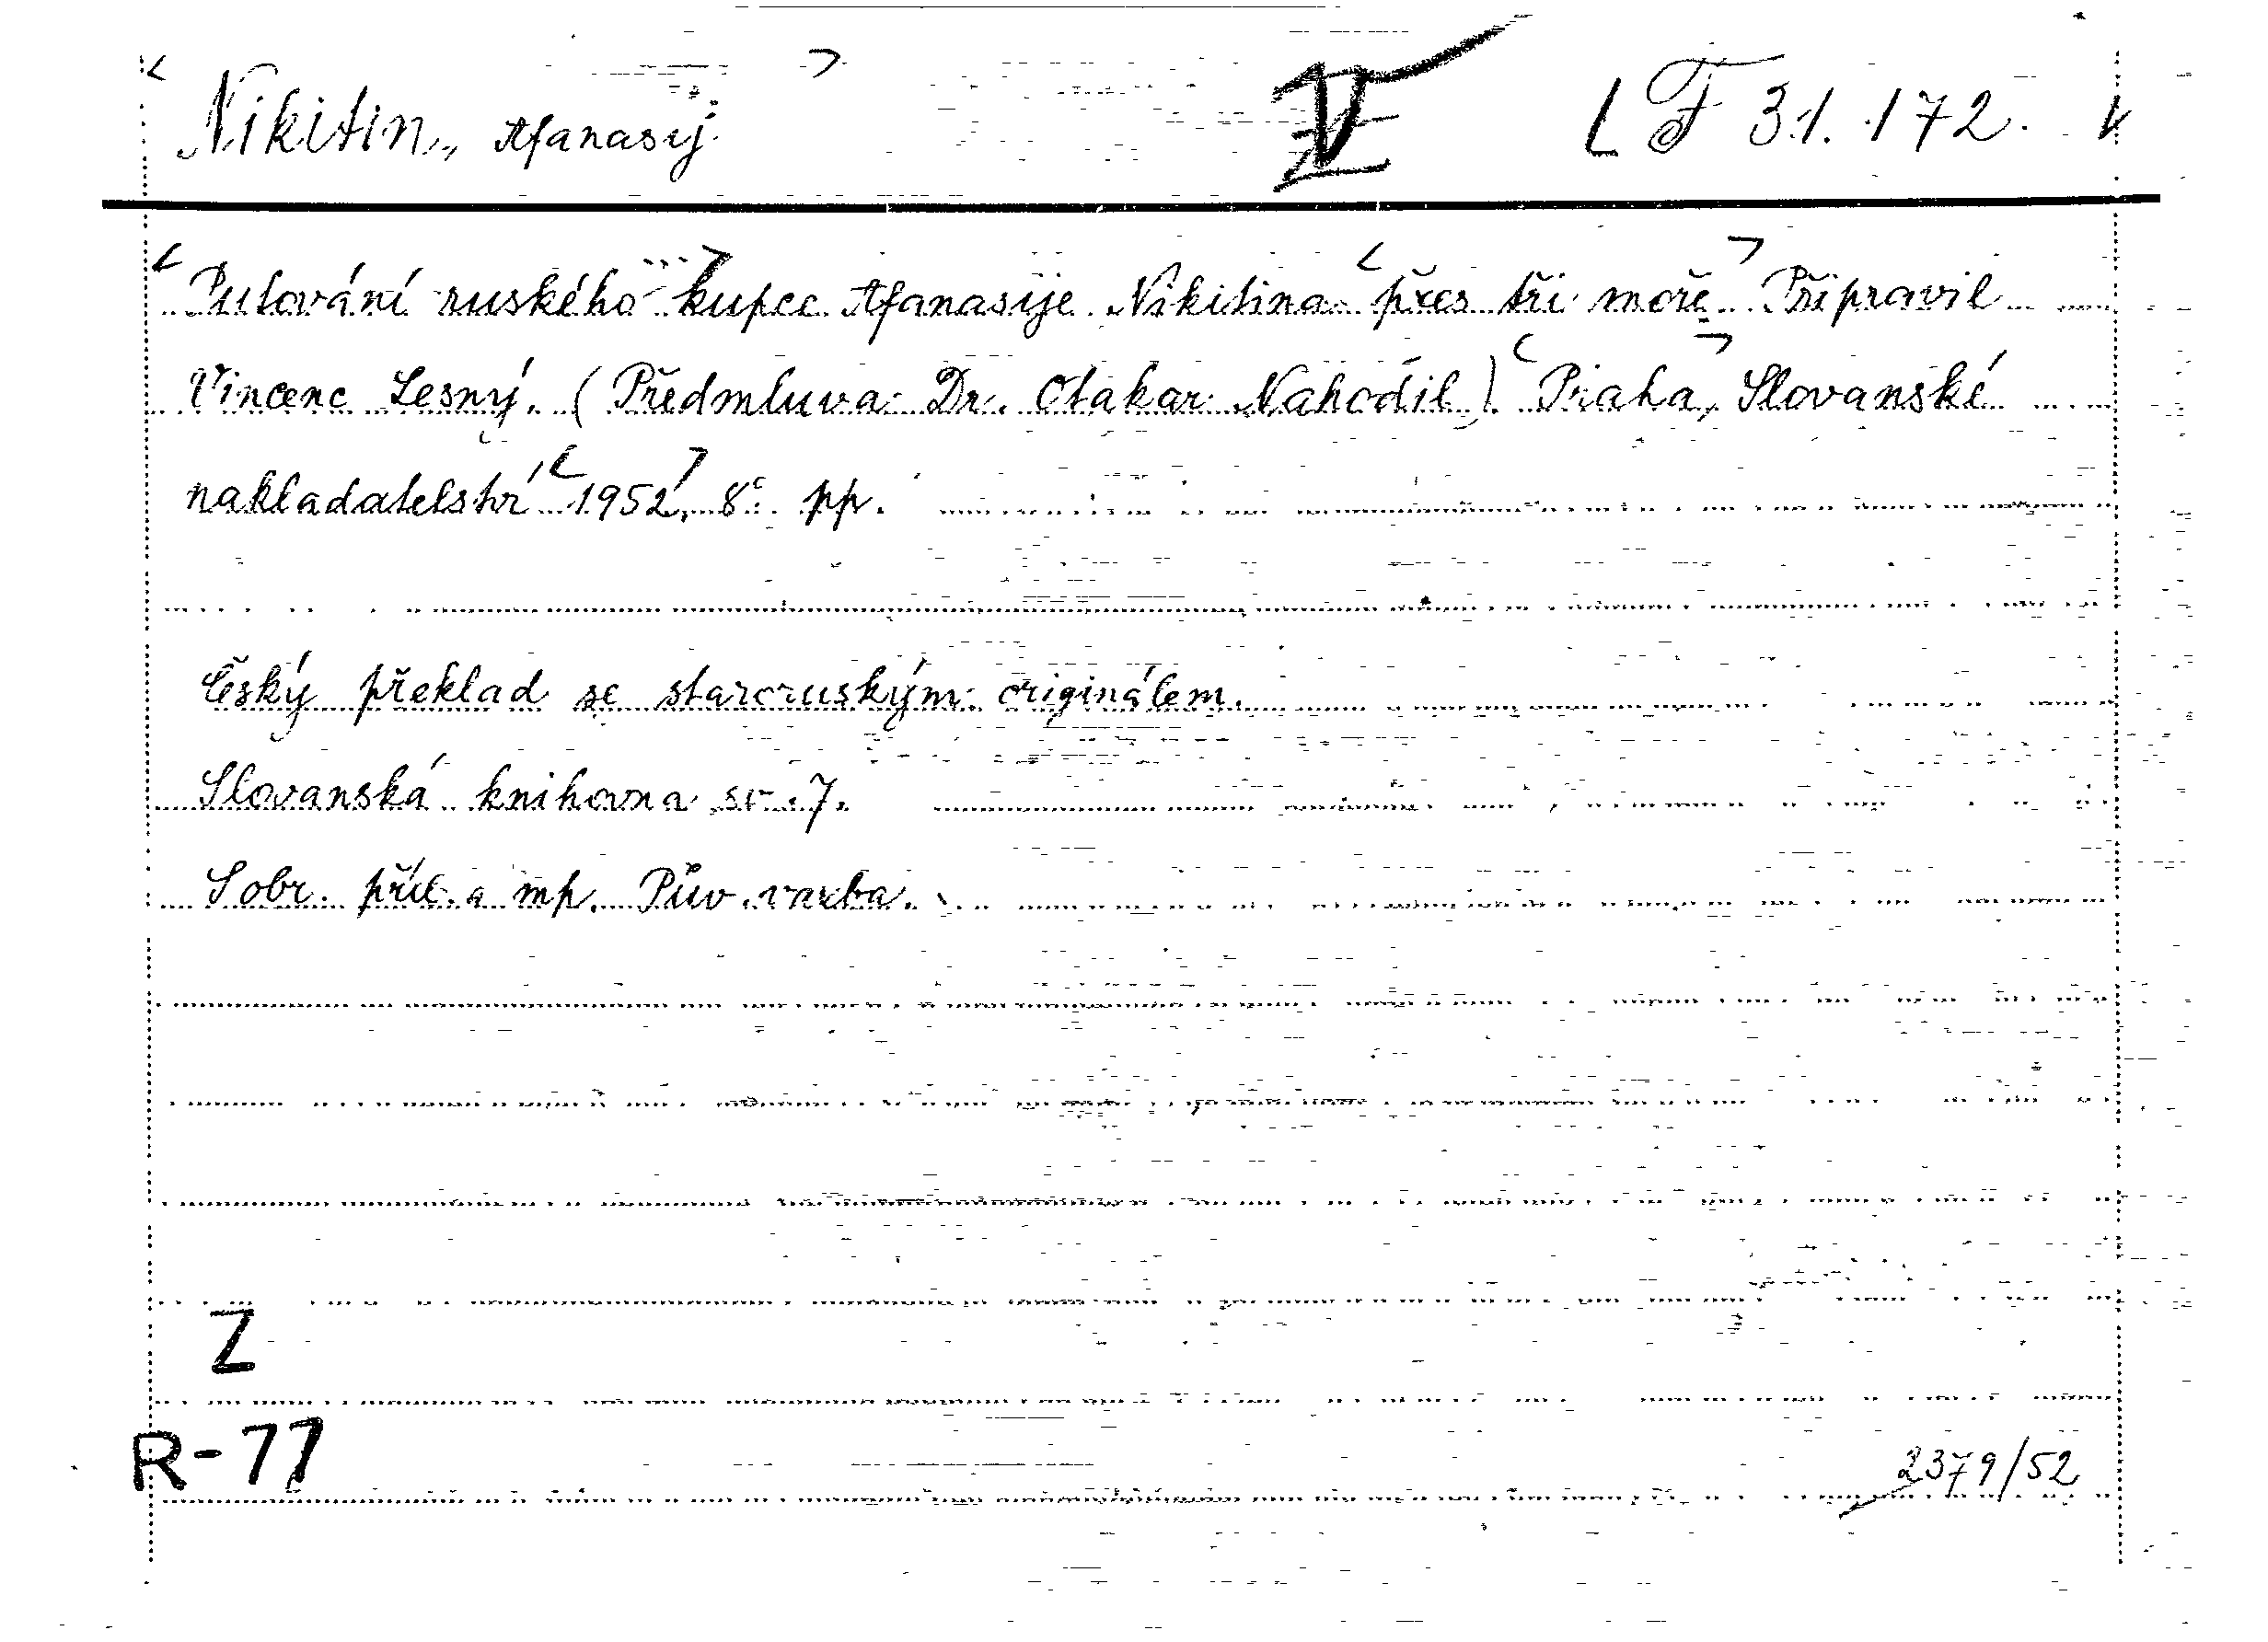 Nikitin, Afanasij IV F 31.172.
Putování ruského kupce Afanasije Nikitina přes tři moře. Připravil
Vincenc Lesný. (Předmluva: Dr. Otakar Nahodil). Praha, Slovanské
nakladatelství 1952, 8° pp.
Český překlad se staroruským originálem.
Slovanská knihovna sv. 7.
S obr. příl. a mp. Pův. vazba.
Z
R-77
2379/52